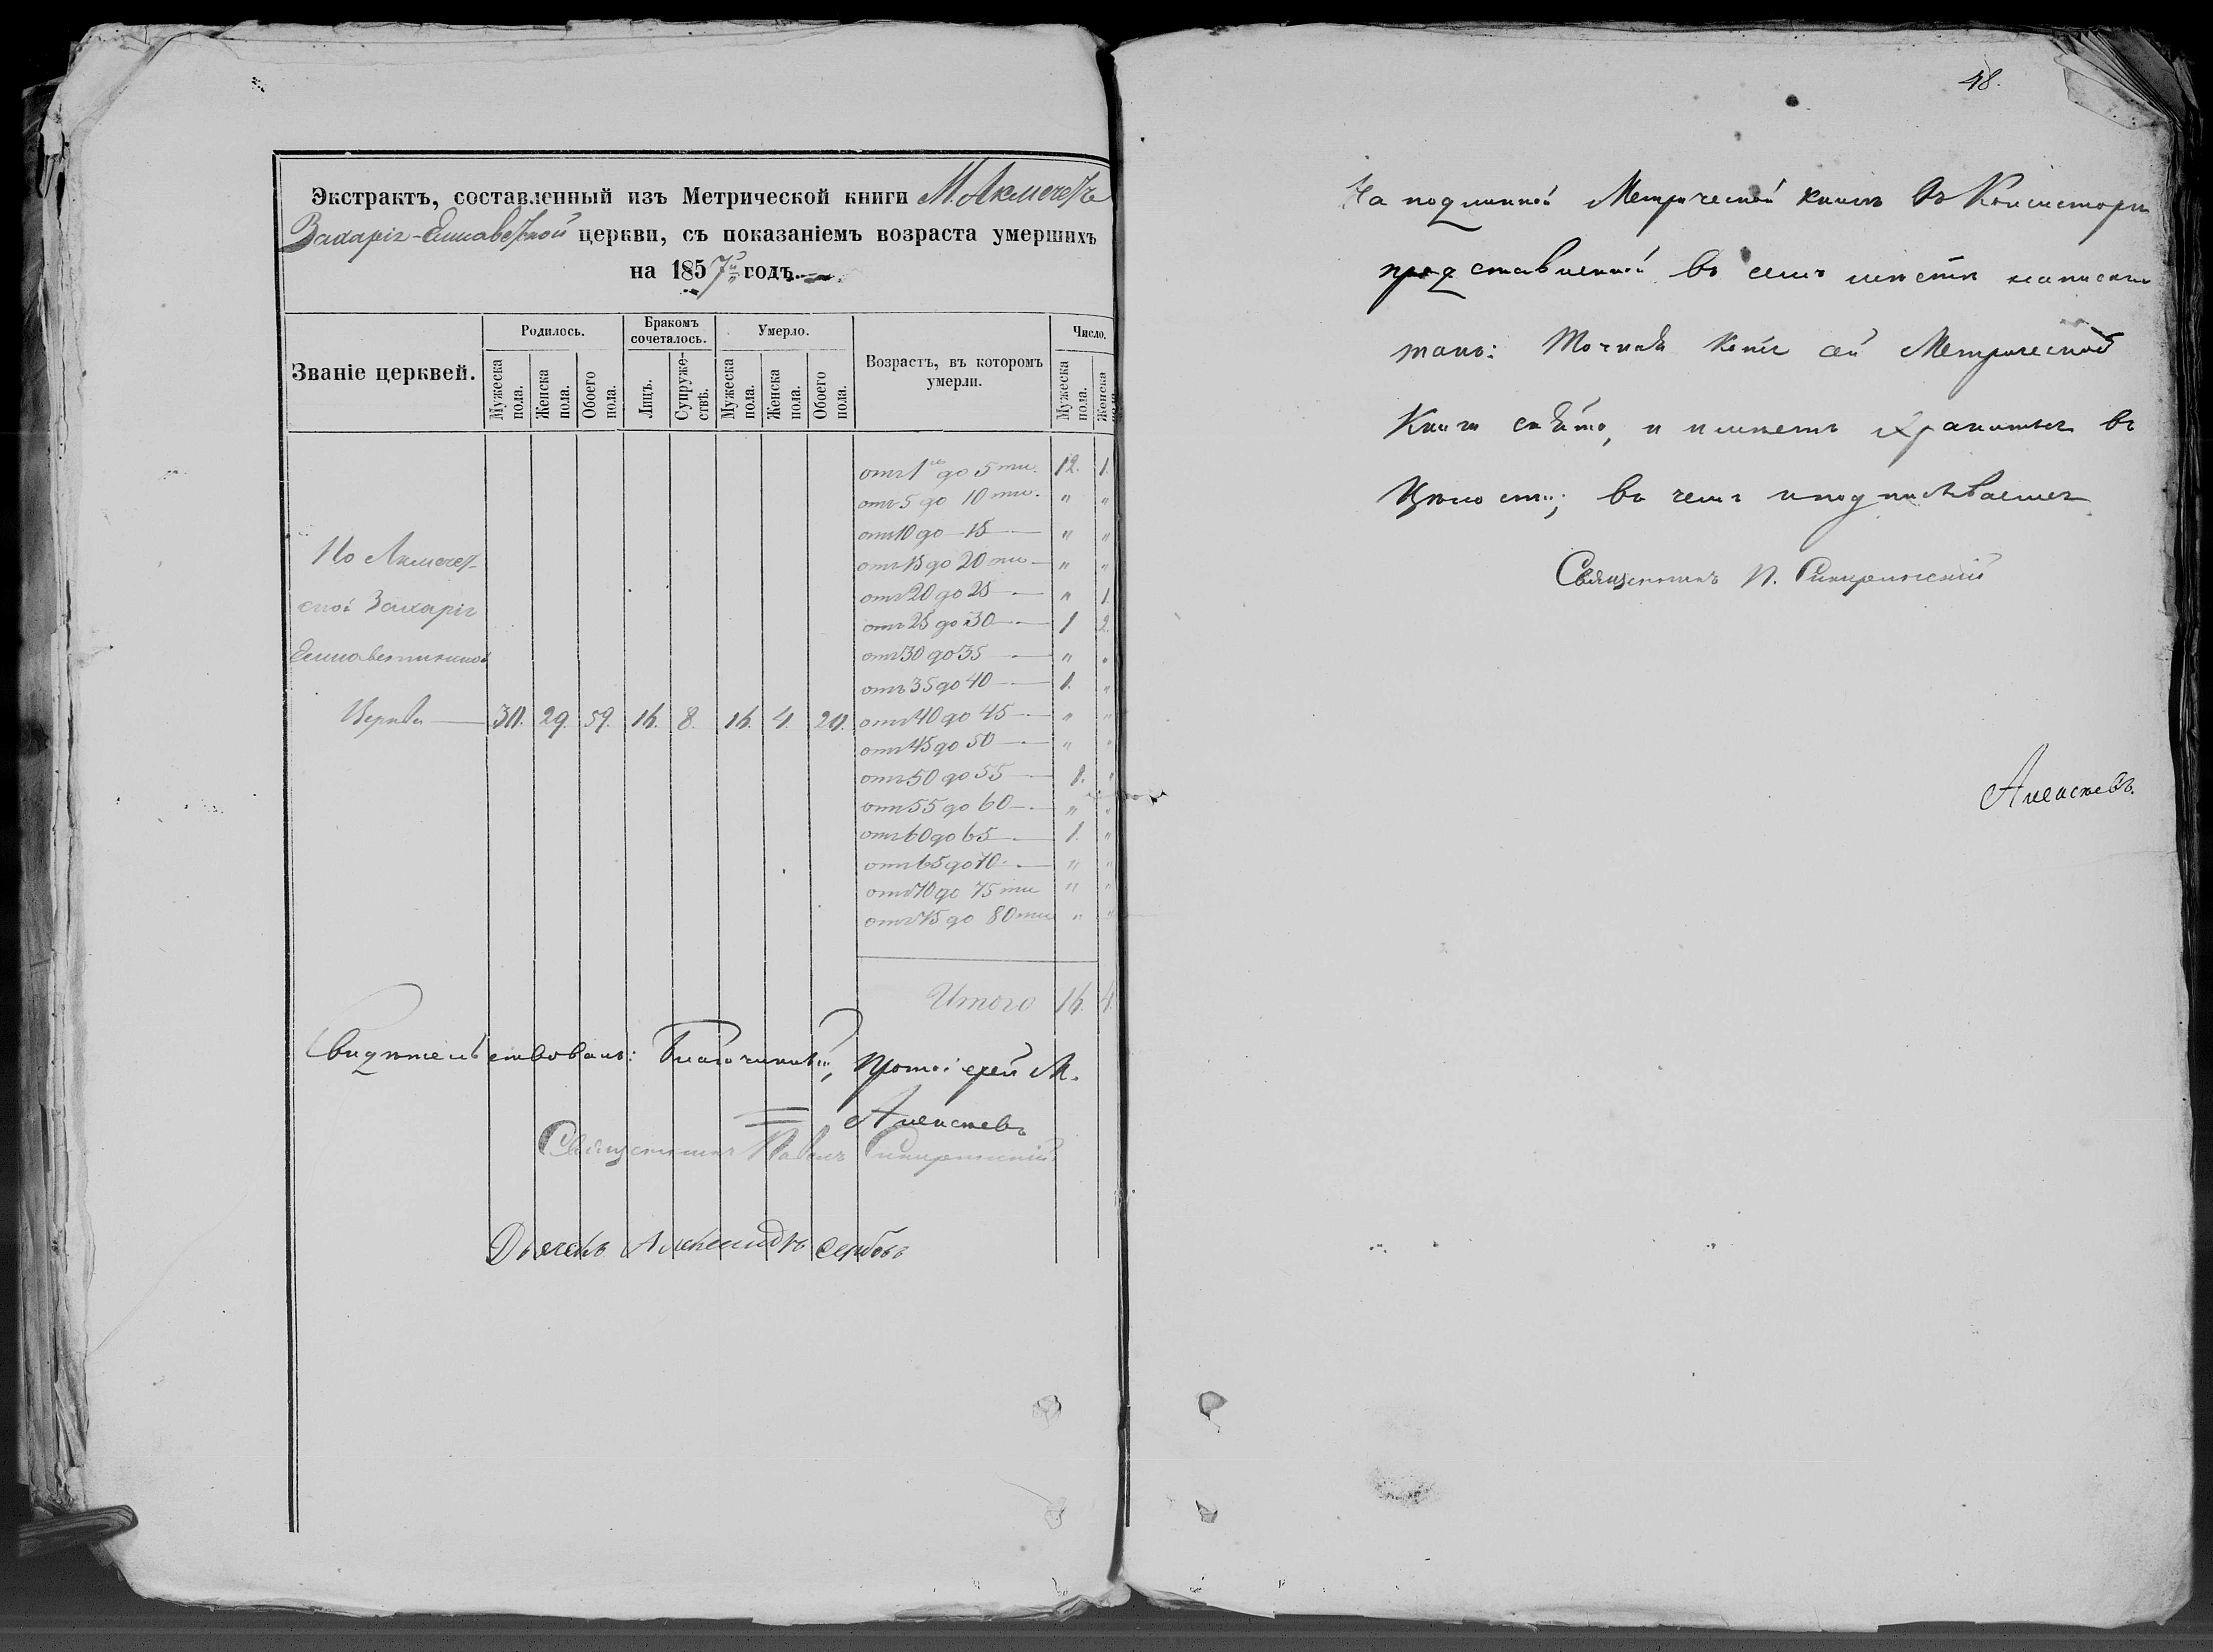 Экстрактъ, составленный изъ Метрической книги М. Акмечетъ
Захаріе-Елисаветской церкви, съ показаніемъ возраста умершихъ
на 1857й годъ.
Званіе церквей.
Родилось.
Бракомъ сочеталось.
Умерло.
Возрастъ, въ которомъ умерли.
Число.
Мужеска пола.
Женска пола.
Обоего пола.
Лицъ.
Супружествъ.
Мужеска пола.
Женска пола.
Обоего пола.
Мужеска пола.
Женска пола.
отъ 1го до 5ти. 12. 1.
отъ 5 до 10ти. " "
отъ 10 до 15 " "
отъ 15 до 20ти " "
отъ 20 до 25 " 1.
отъ 25 до 30 1 2.
отъ 30 до 35 " "
отъ 35 до 40 1. "
отъ 40 до 45 " "
отъ 45 до 50 " "
отъ 50 до 55 1. "
отъ 55 до 60 " "
отъ 60 до 65 1. "
отъ 65 до 70 " "
отъ 70 до 75ти " "
отъ 75 до 80ти " "
По Акмечет-
ской Захаріе
Елисаветинской
Церкви 30. 29. 59. 16. 8. 16. 4. 20.
Итого 16. 4.
Свидѣтельствовалъ: Благочинный, Протоіерей М.
Алексѣевъ
Священникъ Павелъ
Дьячекъ Александръ Сербовъ
48.
На подлинной Метрической книгѣ въ Консисторію
представленной въ семъ мѣстѣ написано
такъ: Точная Копія сей Метрической
Книги снята, и имѣетъ храниться въ
Цѣлости; въ чемъ и подписываемся
Священникъ П.
Алексѣевъ.